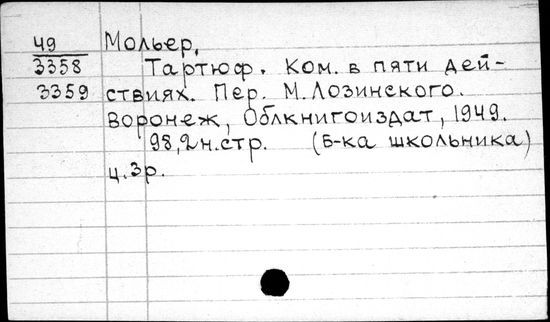 49 Мольер.
3358 Тартюф. Ком. в пяти дей-
3359 ствиях. Пер. М. Лозинского.
Воронеж, Облкнигоиздат, 1949.
98,2н.стр. (Б-ка школьника)
ц. 3р.